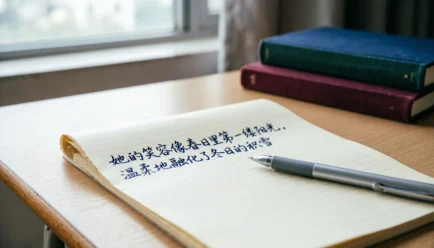 她的笑容像春日里第一缕阳光，
温柔地融化了冬日的雪